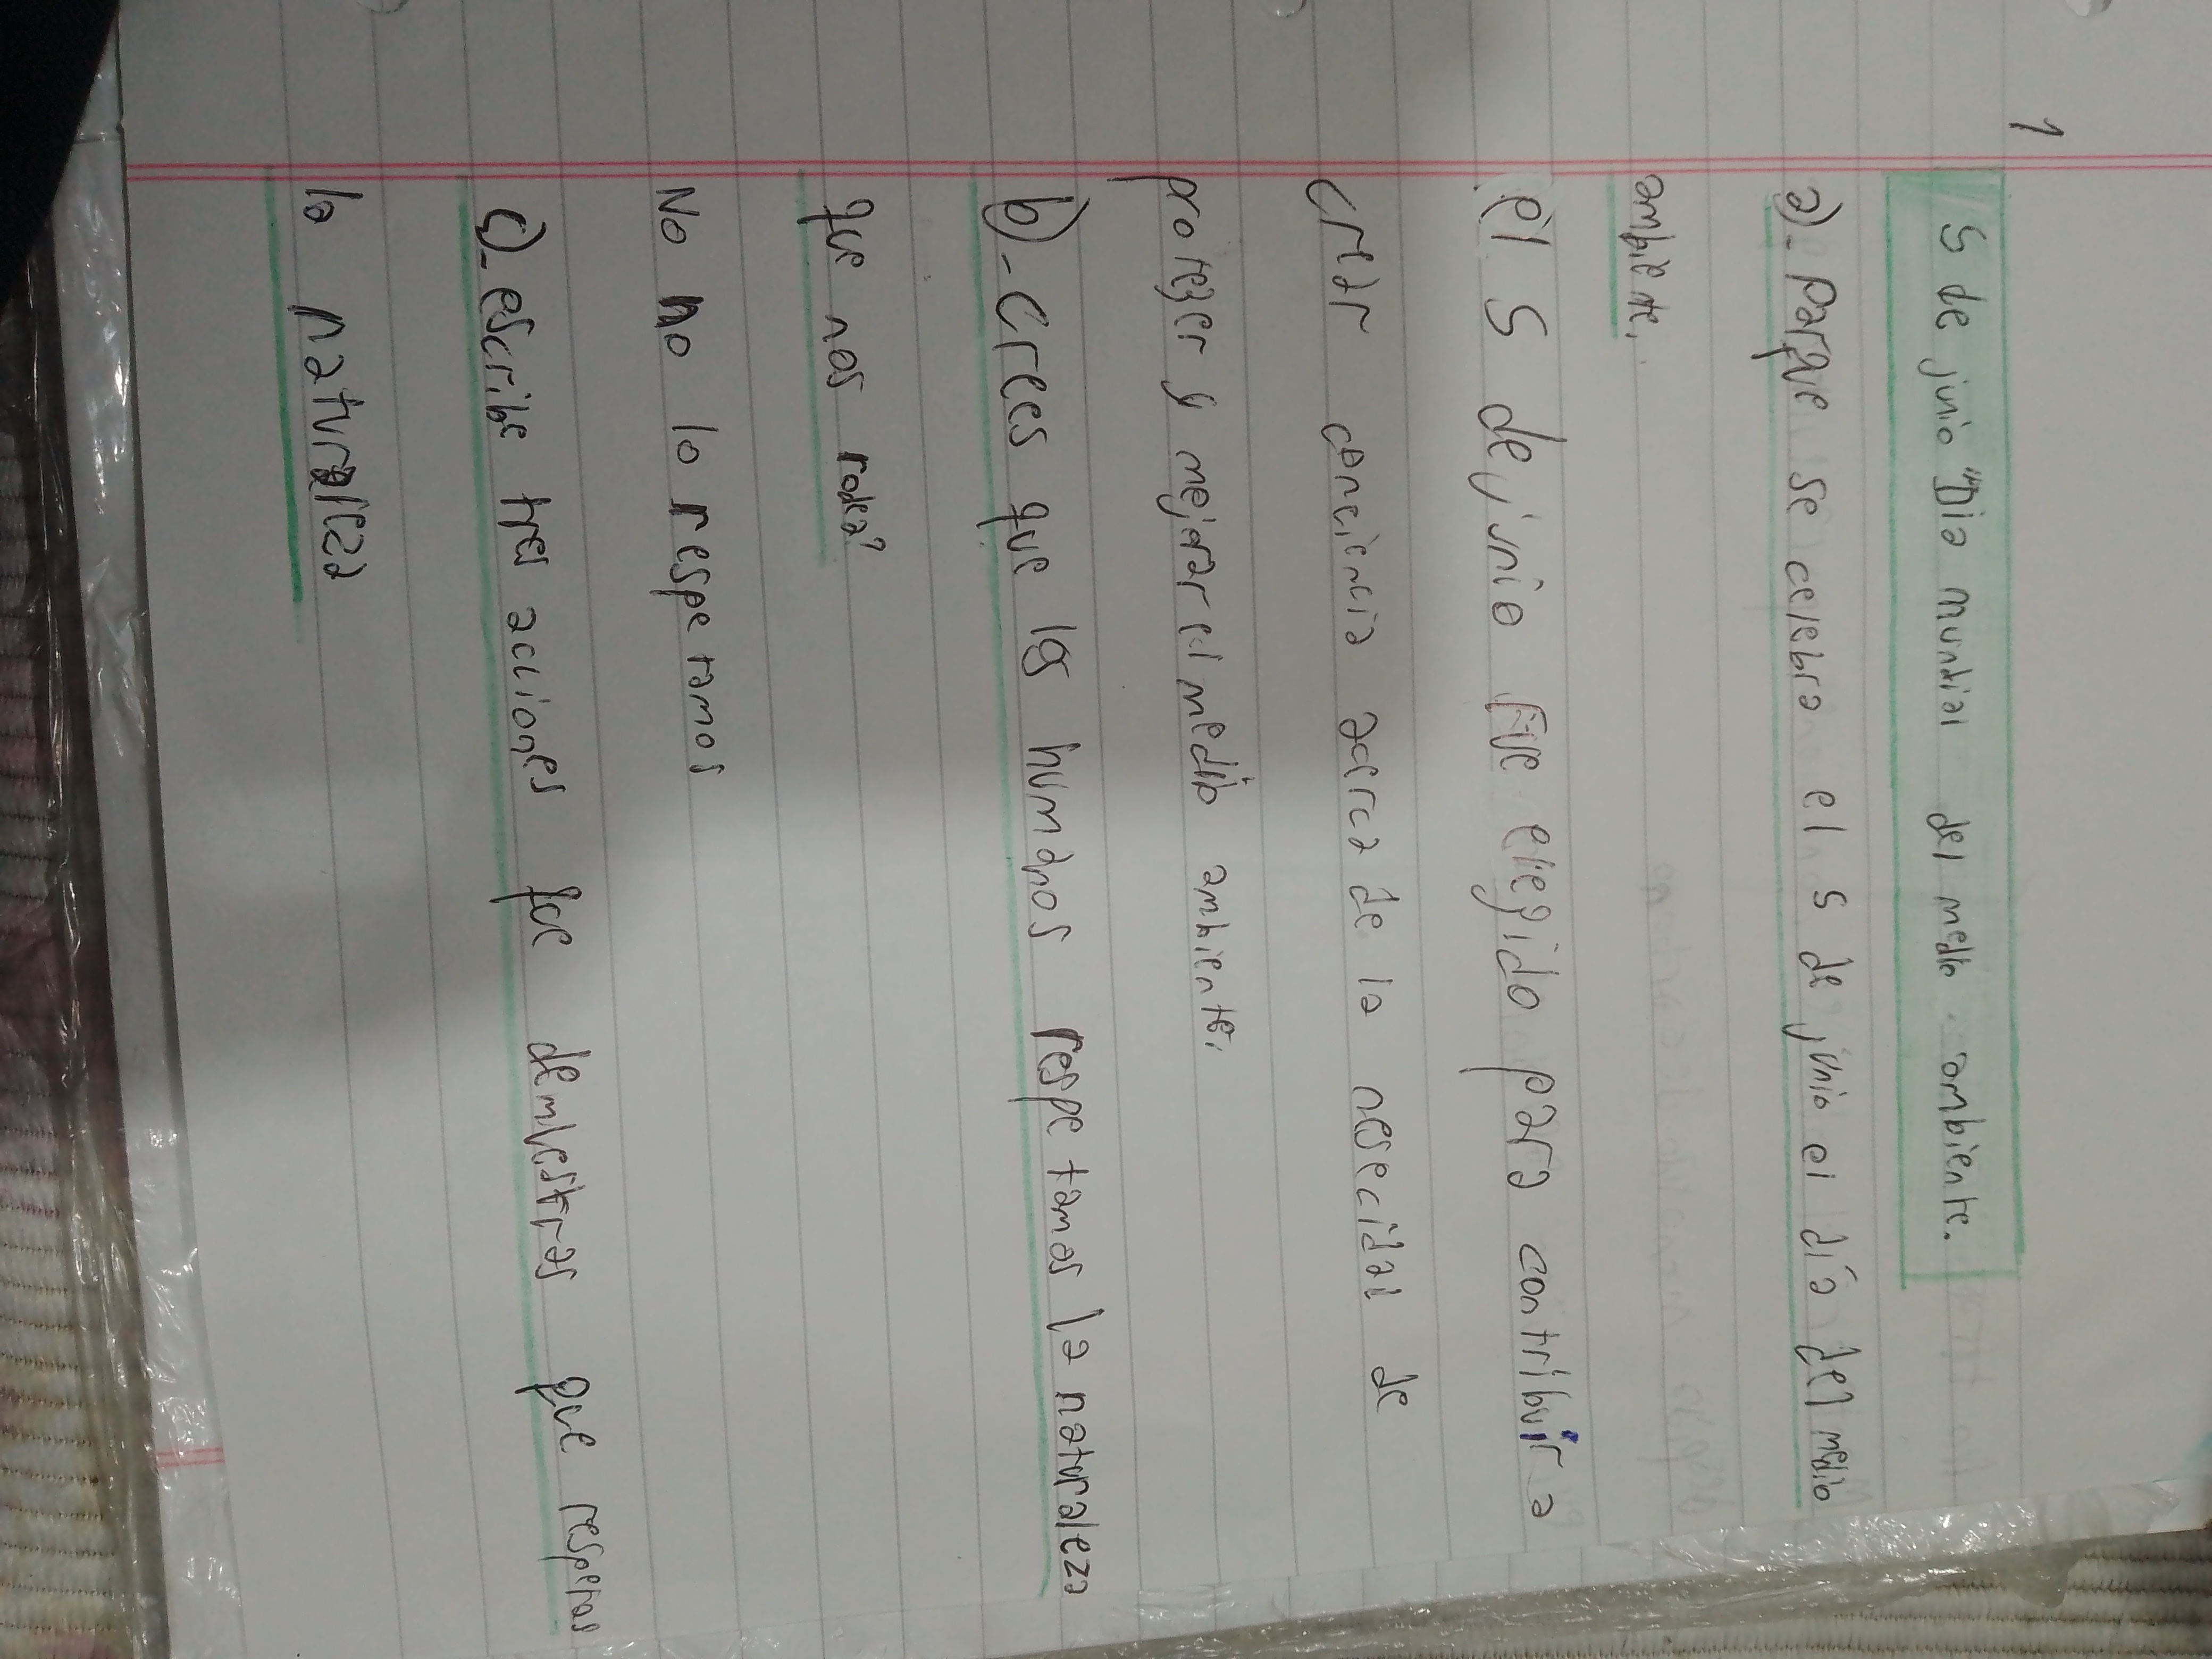 1
5 de junio "Dia mundial del medio ambiente.
a)- Parque se celebra el 5 de junio el día del medio
ambiete.
el 5 de junio Fue eliegido para contribuir a
crear conciencia acerca de la nesecidad de
proteger y mejorar el medio ambiente.
b)- Crees que los humanos respetamos la naturaleza
que nos rodea?
No no lo respetamos
c)- escribe tres acciones que demuestras que respetas
la naturaleza